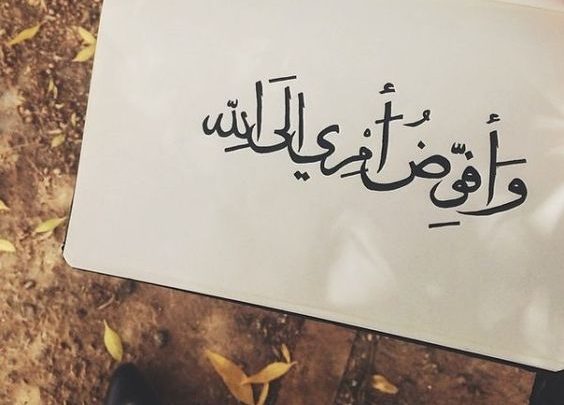 وَأُفَوِّضُ أَمْرِي إِلَى اللّٰهِ